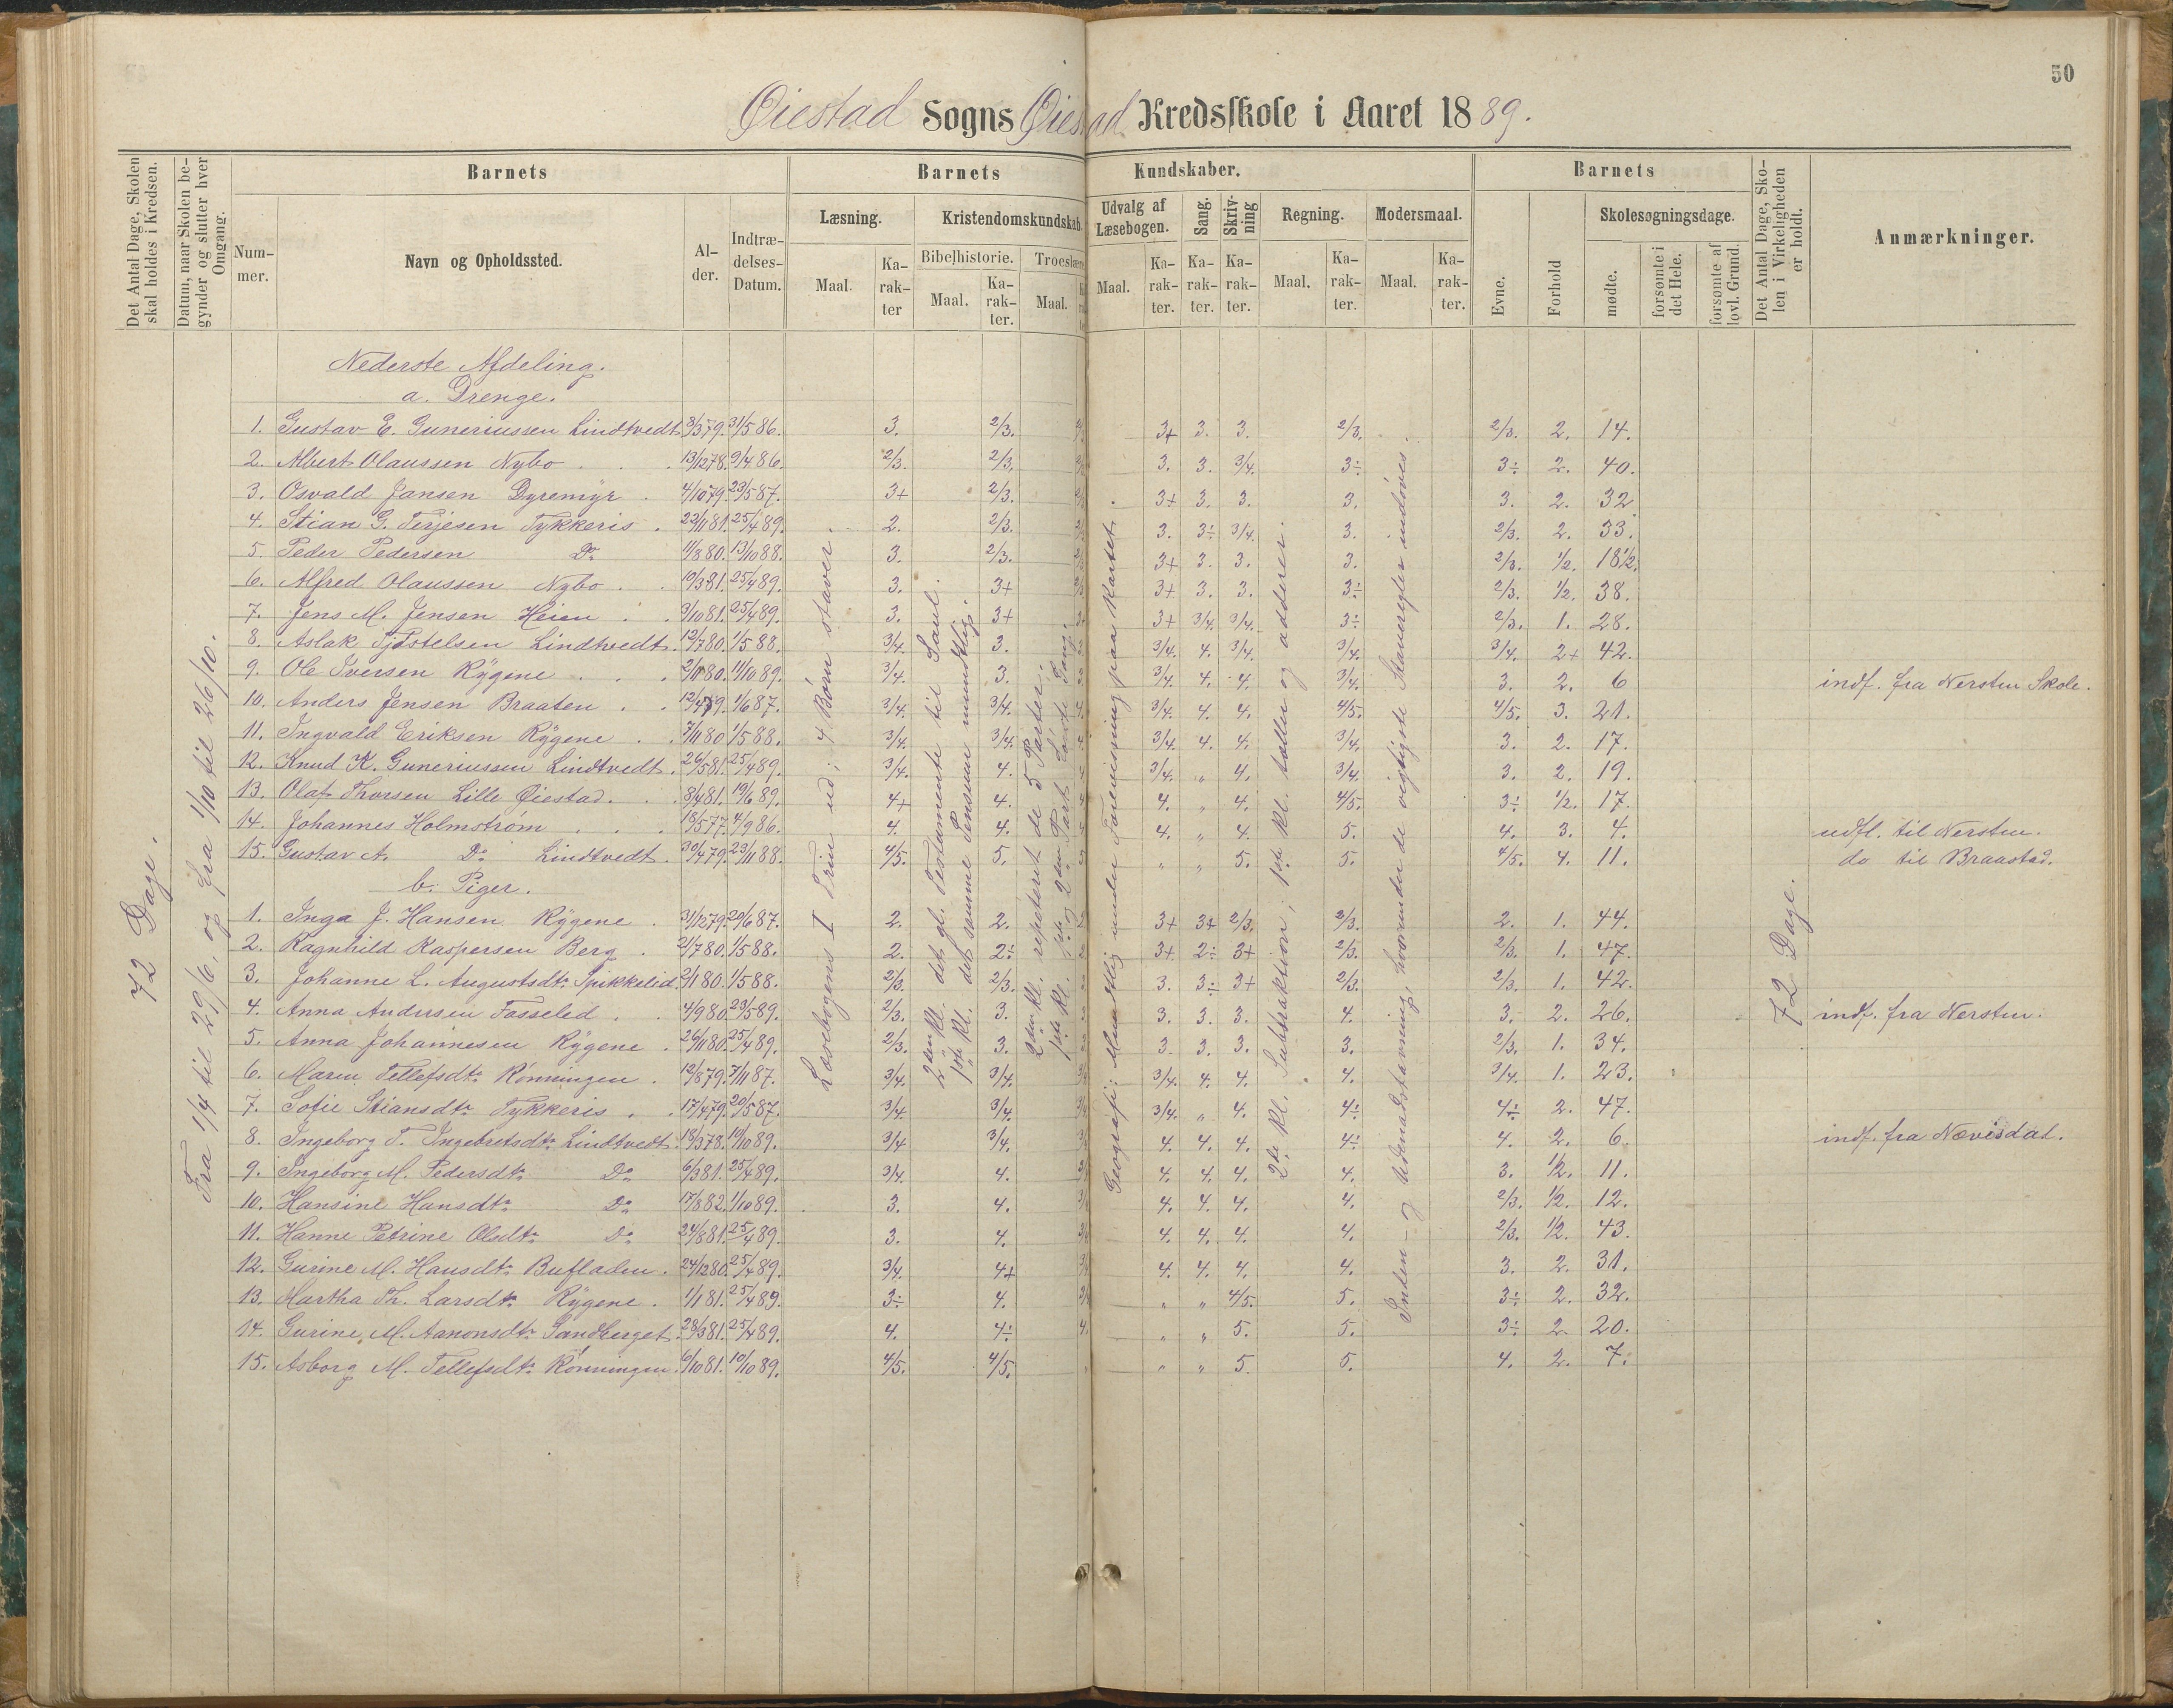 50
Øiestad Sogns Øiestad Kredsskole i Aaret 1889.
Det Antal Dage, Skolen skal holdes i Kredsen.
Datum, naar Skolen begynder og slutter hver Omgang.
Barnets
Barnets Kundskaber.
Barnets
Det Antal Dage, Skolen i Virkeligheden er holdt.
Anmærkninger.
Nummer.
Navn og Opholdssted.
Alder.
Indtrædelses-Datum.
Læsning.
Kristendomskundskab.
Udvalg af Læsebogen.
Sang.
Skrivning
Regning.
Modersmaal.
Evne.
Forhold
Skolesøgningsdage.
Bibelhistorie.
Troeslære
Maal.
Karakter
Maal.
Karakter.
Maal.
Maal.
Karakter.
Karakter.
Karakter.
Maal.
Karakter.
Maal.
Karakter.
mødte.
forsømte i det Hele.
forsømte af lovl. Grund.
72 Dage.
Fra 1/4 til 29/6, og fra 1/10 til 26/10.
Læsebogens I Trin ud; 4 Børn staver.
2den Kl. det gl. Testamente til Saul.
1ste Kl. det samme Pensum mundtlig.
2den Kl. repeteret de 5 Parter.
1ste Kl. 1ste og 2den Part
Geografi: Mundtlig under Forevisning paa Kartet.
2de Kl. Subtraktion; 1ste Kl. taller og adderer.
Inden- og Udenadstavning, hvorunder de vigtigste Staveregler indøves.
72 Dage.
Nederste Afdeling.
a. Drenge.
1. Gustav E. Guneriussen Lindtvedt 3/3 79. 31/5 86. 3. 2/3. 3+ 3. 3. 2/3. 2/3. 2. 14.
2. Albert Olaussen Nybo 13/12 78. 9/4 86. 2/3. 2/3. 3. 3. 3/4. 3÷ 3÷ 2. 40.
3. Osvald Jansen Dyremyr 4/10 79. 23/5 87. 3+ 2/3. 3+ 3. 3. 3. 3. 2. 32
4. Stian G. Terjesen Tykkeris 22/11 81. 25/4 89. 2. 2/3. 3. 3÷ 3/4. 3. 2/3. 2. 33.
5. Peder Pedersen Do 11/8 80. 13/10 88. 3. 2/3. 3+ 3. 3. 3. 2/3. 1/2. 18 1/2.
6. Alfred Olaussen Nybo 10/3 81. 25/4 89. 3. 3+ 3+ 3. 3. 3÷ 2/3. 1/2. 38.
7. Jens M. Jensen Heien 3/10 81. 25/4 89. 3. 3+ 3+ 3/4. 3/4. 3÷ 2/3. 1. 28.
8. Aslak Tjøstelsen Lindtvedt 12/7 80. 1/5 88. 3/4. 3. 3/4. 4. 3/4. 3/4. 3/4. 2+ 42.
9. Ole Iversen Rygene 2/11 80. 11/10 89. 3/4. 3. 3/4. 4. 4. 3/4. 3. 2. 6 indf. fra Nersten Skole.
10. Anders Jensen Braaten 12/4 79. 1/6 87. 3/4. 3/4. 3/4. 4. 4. 4/5. 4/5. 3. 21.
11. Ingvald Eriksen Rygene 7/11 80 1/5 88. 3/4. 3/4. 3/4. 4. 4. 3/4. 3. 2. 17.
12. Knud K. Guneriussen Lindtvedt. 26/5 81. 25/4 89. 3/4. 4. 3/4. „ 4. 3/4. 3. 2. 19.
13. Olaf Thorsen Lille Øiestad. 8/4 81. 19/6 89. 4+ 4. 4. „ 4. 4/5. 3÷ 1/2. 17.
14. Johannes Holmstrøm 18/5 77. 4/9 86. 4. 4. 4. „ 4. 5. 4. 3. 4. udfl. til Nersten.
15. Gustav A. Do Lindtvedt. 30/4 79. 23/11 88. 4/5. 5. „ „ 5. 5. 4/5. 4. 11. do til Braastad.
b. Piger.
1. Inga J. Hansen Rygene 31/12 79. 29/6 87. 2. 2. 3+ 3+ 2/3. 2/3. 2. 1. 44.
2. Ragnhild Kaspersen Berg 2/7 80. 1/5 88. 2. 2÷ 3+ 2÷ 3+ 2/3. 2/3. 1. 47.
3. Johanne L. Augustsdtr. Spikkelid 2/11 80. 1/5 88. 2/3. 2/3. 3. 3÷ 3+ 2/3. 2/3. 1. 42.
4. Anna Andersen Fosselid 4/9 80. 23/5 89. 2/3. 3. 3. 3. 3. 4. 3. 2. 26. indf. fra Nersten.
5. Anna Johannesen Rygene 26/11 80. 25/4 89. 2/3. 3. 3. 3. 3. 3. 2/3. 1. 34.
6. Maren Tellefsdtr. Rønningen 12/8 79. 7/11 87. 3/4. 3/4. 3/4. 4. 4. 4. 3/4. 1. 23.
7. Sofie Stiansdtr. Tykkeris 17/4 79. 20/5 87. 3/4. 3/4. 3/4. „ 4. 4÷ 4÷ 2. 47.
8. Ingeborg T. Ingebretsdtr. Lindtvedt. 18/3 78. 10/10 89. 3/4 3/4. 4. 4. 4. 4÷ 4. 2. 6. indf. fra Nævisdal.
9. Ingeborg M. Pedersdtr. Do 6/3 81. 25/4 89. 3/4. 4. 4. 4. 4. 4. 3. 1/2. 11.
10. Hansine Hansdtr. Do 17/8 82. 1/10 89. 3. 4. 4. 4. 4. 4. 2/3. 1/2. 12.
11. Hanne Petrine Olsdtr. Do 24/8 81. 25/4 89. 3. 4. 4. 4. 4. 4. 2/3. 1/2. 43.
12. Gurine M. Hansdtr. Bufladen 24/12 80. 25/4 89. 3/4. 4+ 4. 4. 4. 4. 3. 2. 31.
13. Martha Th. Larsdtr. Rygene 1/1 81. 25/4 89. 3÷ 4. „ „ 4/5. 5. 3÷ 2. 32.
14. Gurine M. Aanonsdtr. Sandberget. 28/3 81. 25/4 89. 4. 4÷ „ „ 5. 5. 3÷ 2. 20.
15. Asborg M. Tellefsdtr. Rønningen 6/10 81. 10/10 89. 4/5. 4/5. „ „ 5. 5. 4. 2. 7.